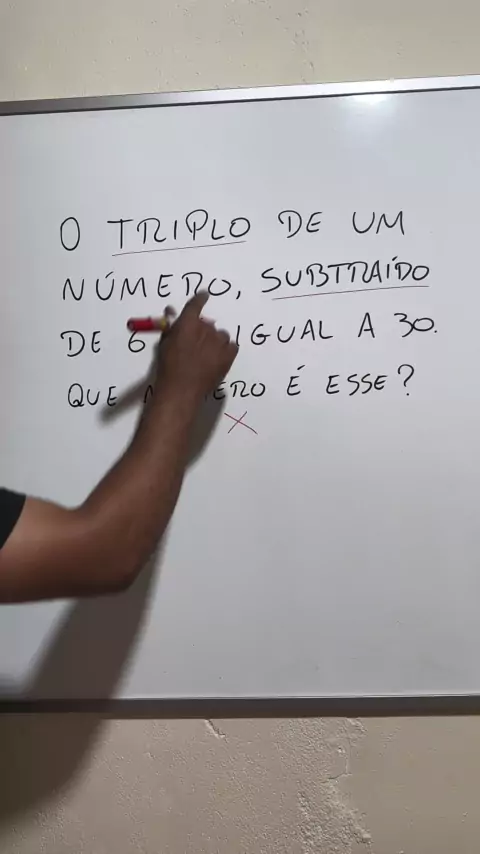 O TRIPLO DE UM
NÚMERO, SUBTRAÍDO
DE 6 IGUAL A 30.
QUE É ESSE?
X